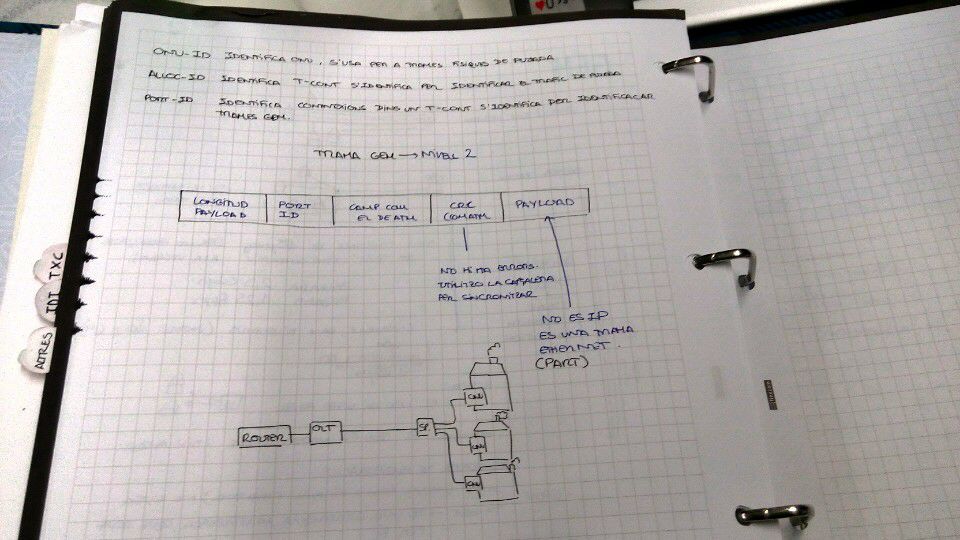 ONU-ID IDENTIFICA ONU, S'USA PER A TRAMES FÍSIQUES DE PUJADA
ALLOC-ID IDENTIFICA T-CONT S'IDENTIFICA PER IDENTIFICAR EL TRAFIC DE PUJADA
PORT-ID IDENTIFICA CONNEXIONS DINS UN T-CONT S'IDENTIFICA PER IDENTIFICAR
TRAMES GEM.
TRAMA GEM → NIVELL 2
LONGITUD
PAYLOAD
PORT
ID
CAMP COM
EL DE ATM
CRC
COM ATM
PAYLOAD
NO HI HA ERRORS.
UTILITZO LA CAPÇALERA
PER SINCRONITZAR
NO ES IP
ES UNA TRAMA
ETHERNET.
(PART)
ROUTER
OLT
SP
ONU
ONU
ONU
TXC
TDT
ALTRES